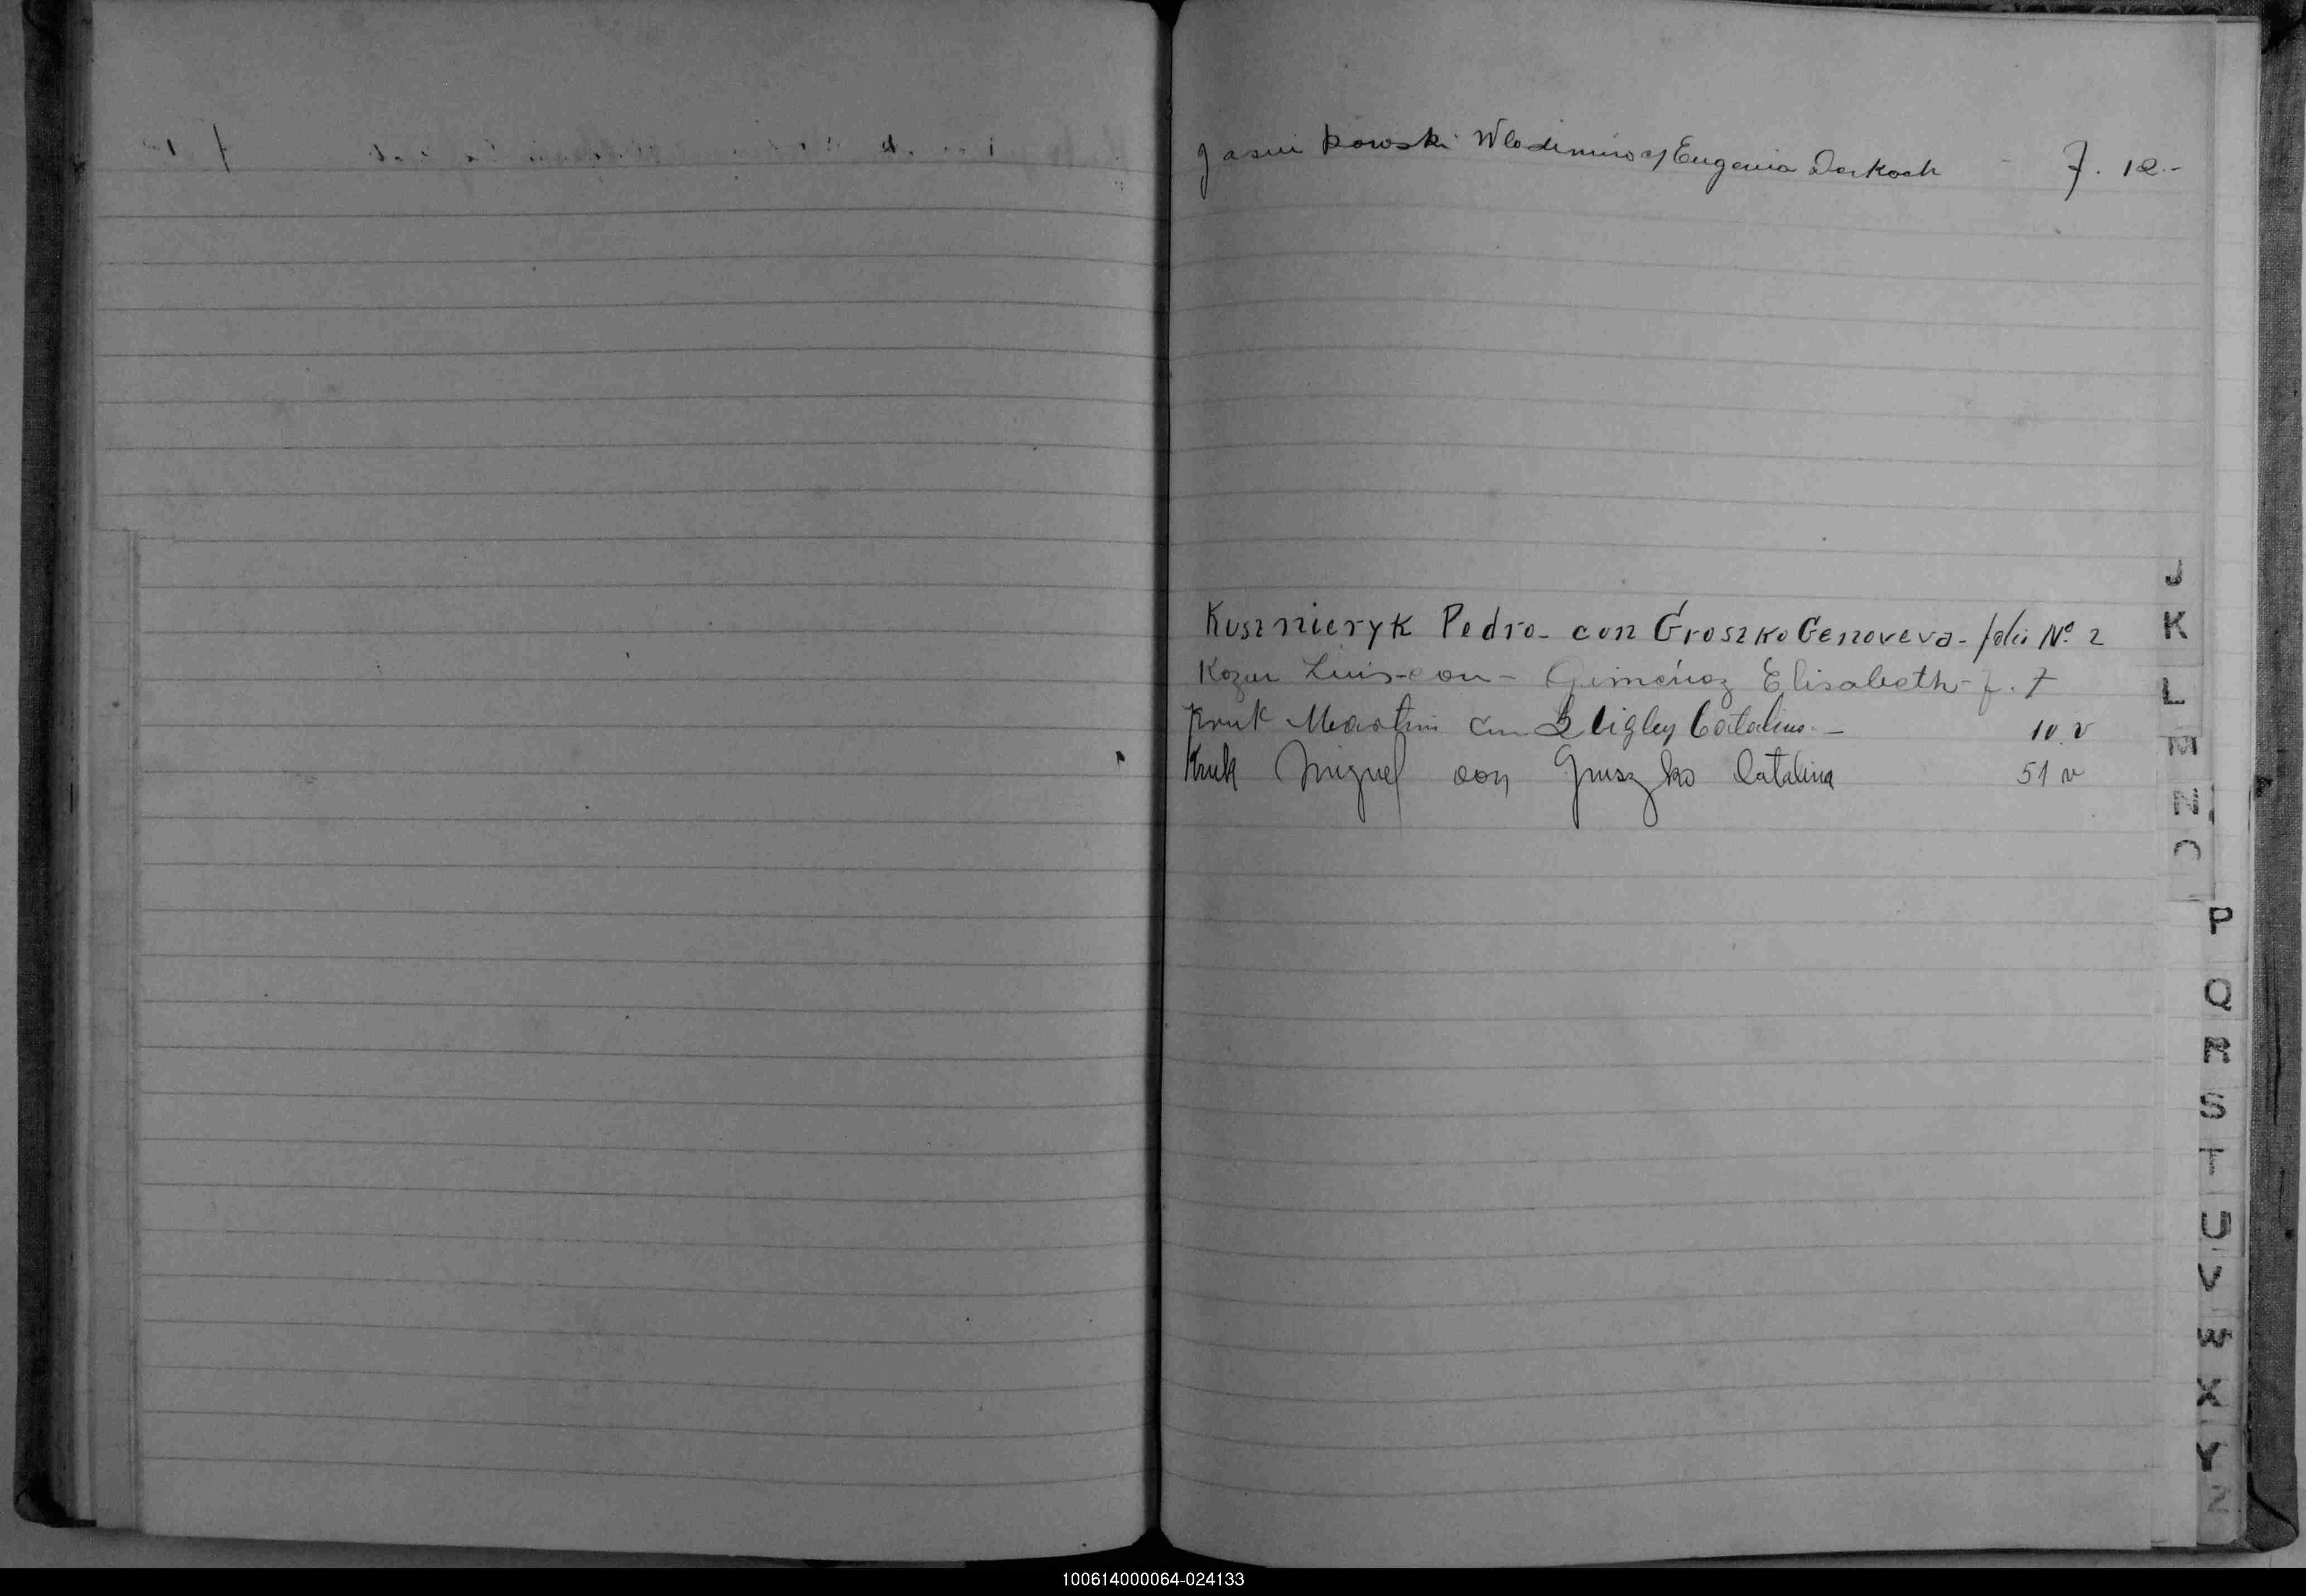 Jasin kowski Wlodimiro c/ Eugenia Derkach - f. 12.-
Kusznieryk Pedro - con Groszko Genoveva - folio Nº 2
J
K
Kozur Luis - con - Giménez Elisabeth - f. 7
L
Kruk Martin con Catalina - 10 v
M
Kruk Miguel con Gruszko Catalina 51 v
N
O
P
Q
R
S
T
U
V
W
X
Y
Z
100614000064-024133